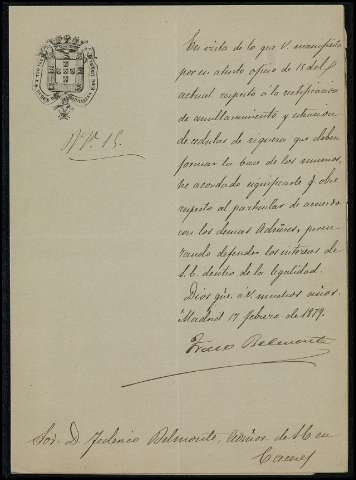 Nº. 15.
En vista de lo que V. manifiesta
por su atento oficio de 15 del
actual respecto á la rectificacion
de amillaramiento y estension
de cedulas de riqueza que deben
formar la base de los mismos,
he acordado significarle q. obre
respecto al particular de acuerdo
con los demas Admores, procu-
rando defender los intereses de
S.E. dentro de la legalidad.
Dios gũe. á V. muchos años.
Madrid 17 febrero de 1879.
Franco Belmonte
Sor. D. Federico Belmonte, Admor. de SE en
Caceres